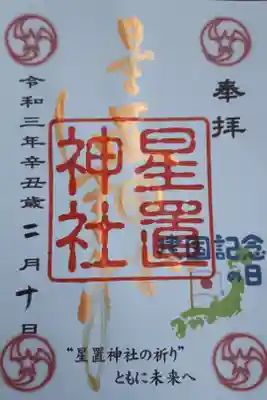 奉拝
星置神社
星置神社
建国記念
の日
令和三年辛丑歳二月十日
“星置神社の祈り”
ともに未来へ